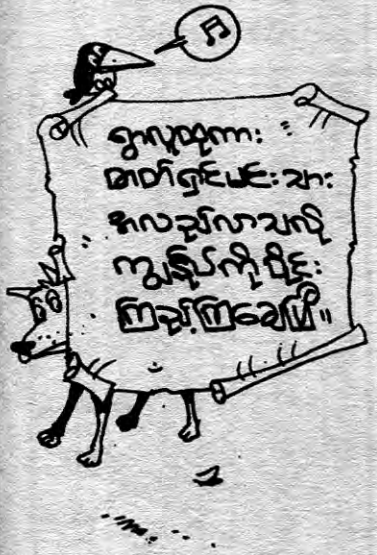 ရွာလူထုကား
ဓာတ်ရှင်မင်းသား
အလည်လာသလို
ကျွန်ုပ်ကို ဝိုင်း
ကြည့်ကြချေပြီ။